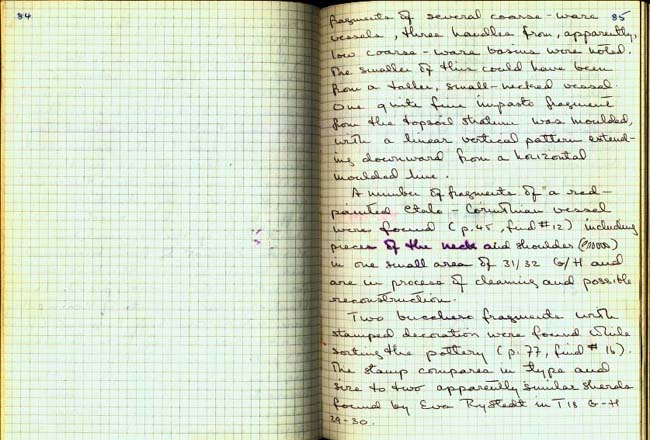 84
85
fragments of several coarse-ware
vessels, three handles from, apparently,
low coarse-ware basins were noted.
The smaller of this could have been
from a taller, small-necked vessel.
One quite fine impasto fragment
from the topsoil stratum was moulded,
with a linear vertical pattern extend-
ing downward from a horizontal
moulded line.
A number of fragments of a red-
painted Etalo-Corinthian vessel
were found (p.45, find #12) including
pieces of the neck and shoulder
in one small area of 31/32 G/H and
are in process of cleaning and possible
reconstruction.
Two bucchero fragments with
stamped decoration were found while
sorting the pottery (p.77, find #16).
The stamp compares in type and
size to two apparently similar sherds
found by Eva Rystedt in T18 G-H
29-30.